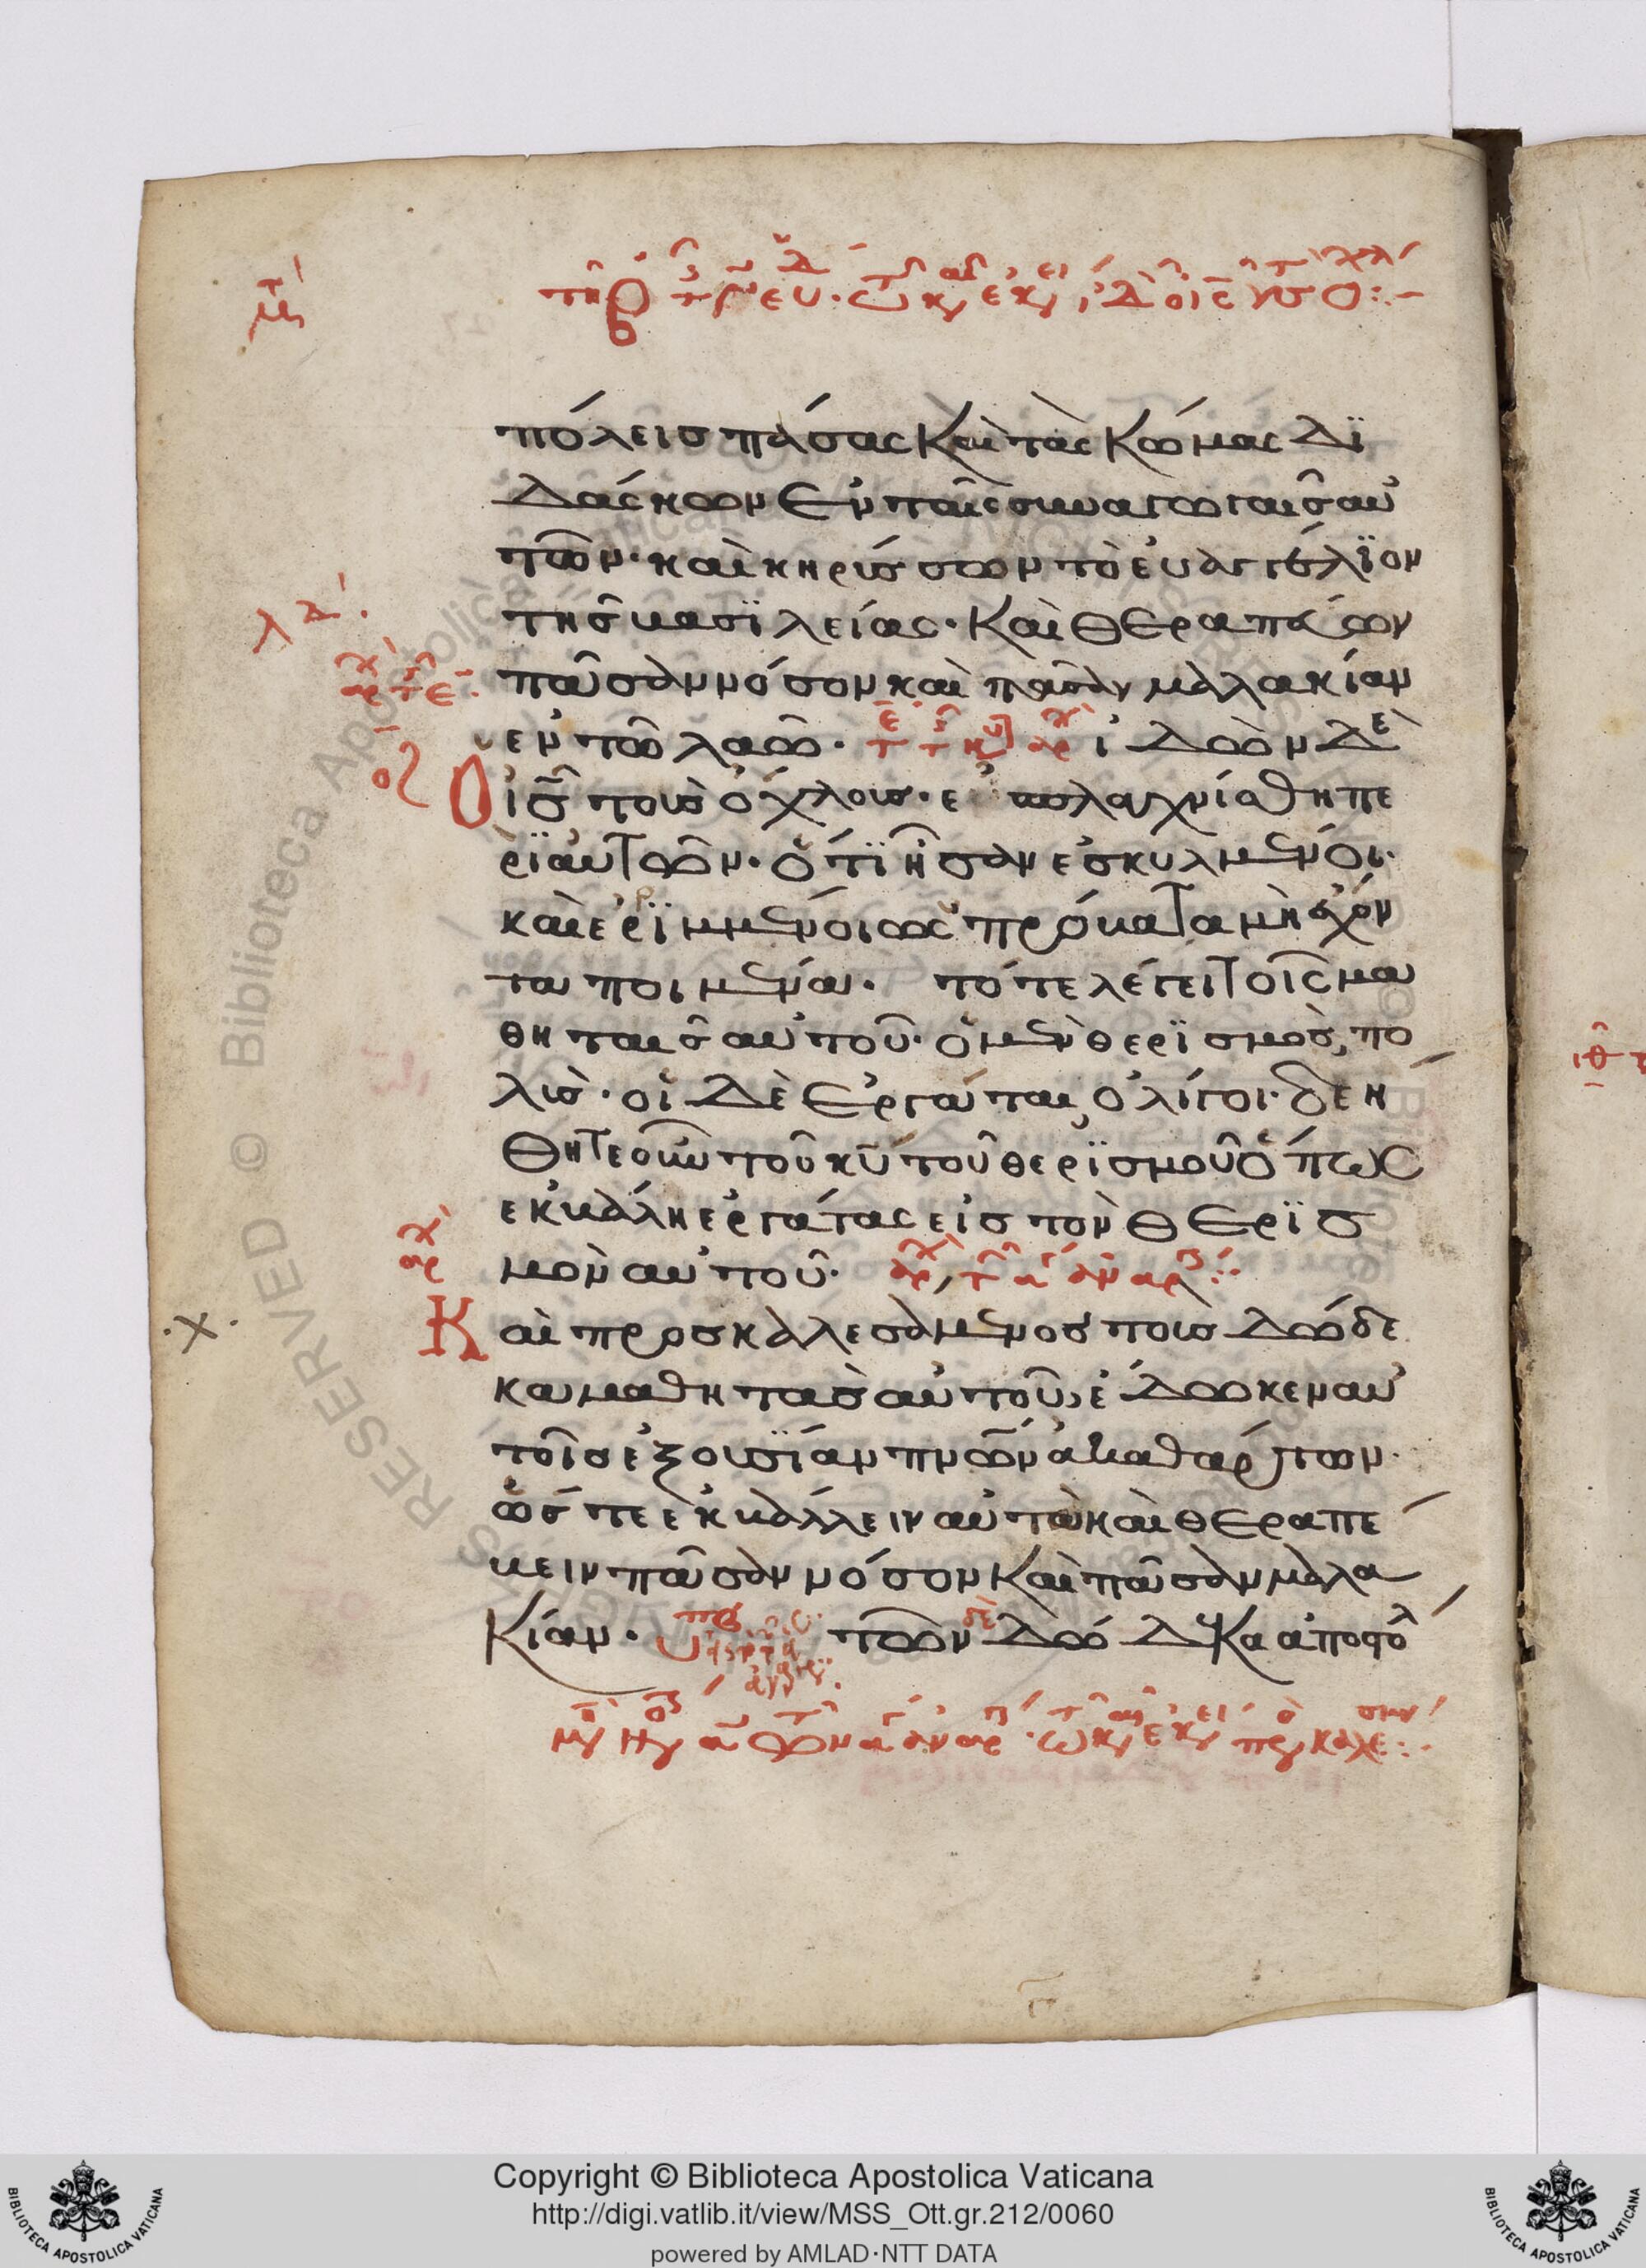 πόλεισ πάσας καὶ τὰς κώμας δϊ
δάσκων ἐν ταῖς συναγωγαῖσ αὐ
τῶν· καὶ κηρύσσων τὸ εὐαγγέλϊον
τῆσ βασϊλείας· καὶ θεραπεύων
πᾶσαν νόσον καὶ πᾶσαν μαλακίαν
ἐν τῶ λαῶ· ἰδὼν δὲ
Ὁ ισ τοὺσ ὄχλουσ· ἐσπλαγχνίσθη πε
ρϊ αὐτῶν· ὅτϊ ἦσαν ἐσκυλμένοι·
καὶ ἐρϊμμένοι ὡς πρόβατα μὴ ἔχον
τα ποιμένα· τότε λέγει τοῖς μα
θηταῖσ αὐτοῦ· ὁ μὲν θερϊσμὸσ, πο
λὺσ· οἱ δὲ ἐργάται, ὀλίγοι· δεή
θητε οὖν τοῦ κυ τοῦ θερϊσμοῦ ὅπως
ἐκβάλη ἐργάτας εἰσ τὸν θερϊσ
μὸν αὐτοῦ·
Καὶ προσκαλεσάμενοσ τοὺσ δώδε
κα μαθητὰσ αὐτοῦ, ἔδωκεν αὐ
τοῖσ ἐξουσϊαν πνῶν ἀκαθάρτων·
ὥστε ἐκβάλλειν αὐτὰ καὶ θεραπε
ύειν πᾶσαν νόσον καὶ πᾶσαν μαλα
κίαν· τῶν δὲ δώδεκα ἀποστολ
Copyright © Biblioteca Apostolica Vaticana
http://digi.vatlib.it/view/MSS_Ott.gr.212/0060
powered by AMLAD·NTT DATA
BIBLIOTECA APOSTOLICA VATICANA
BIBLIOTECA APOSTOLICA VATICANA